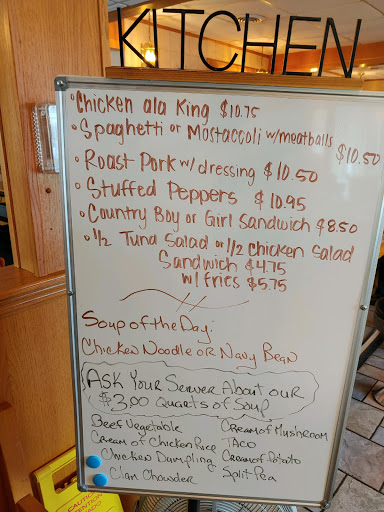 KITCHEN
• Chicken ala King $10.75
• Spaghetti or Mostaccoli w/meatballs $10.50
• Roast Pork w/ dressing $10.50
• Stuffed Peppers $10.95
• Country Boy or Girl Sandwich $8.50
• 1/2 Tuna Salad or 1/2 Chicken Salad
Sandwich $4.75
w/ fries $5.75
Soup of the Day:
Chicken Noodle or Navy Bean
Ask Your Server About our
$3.00 Quarts of Soup
Beef Vegetable
Cream of Chicken Rice
Chicken Dumpling
Clam Chowder
Cream of Mushroom
Taco
Cream of Potato
Split Pea
CAUTION